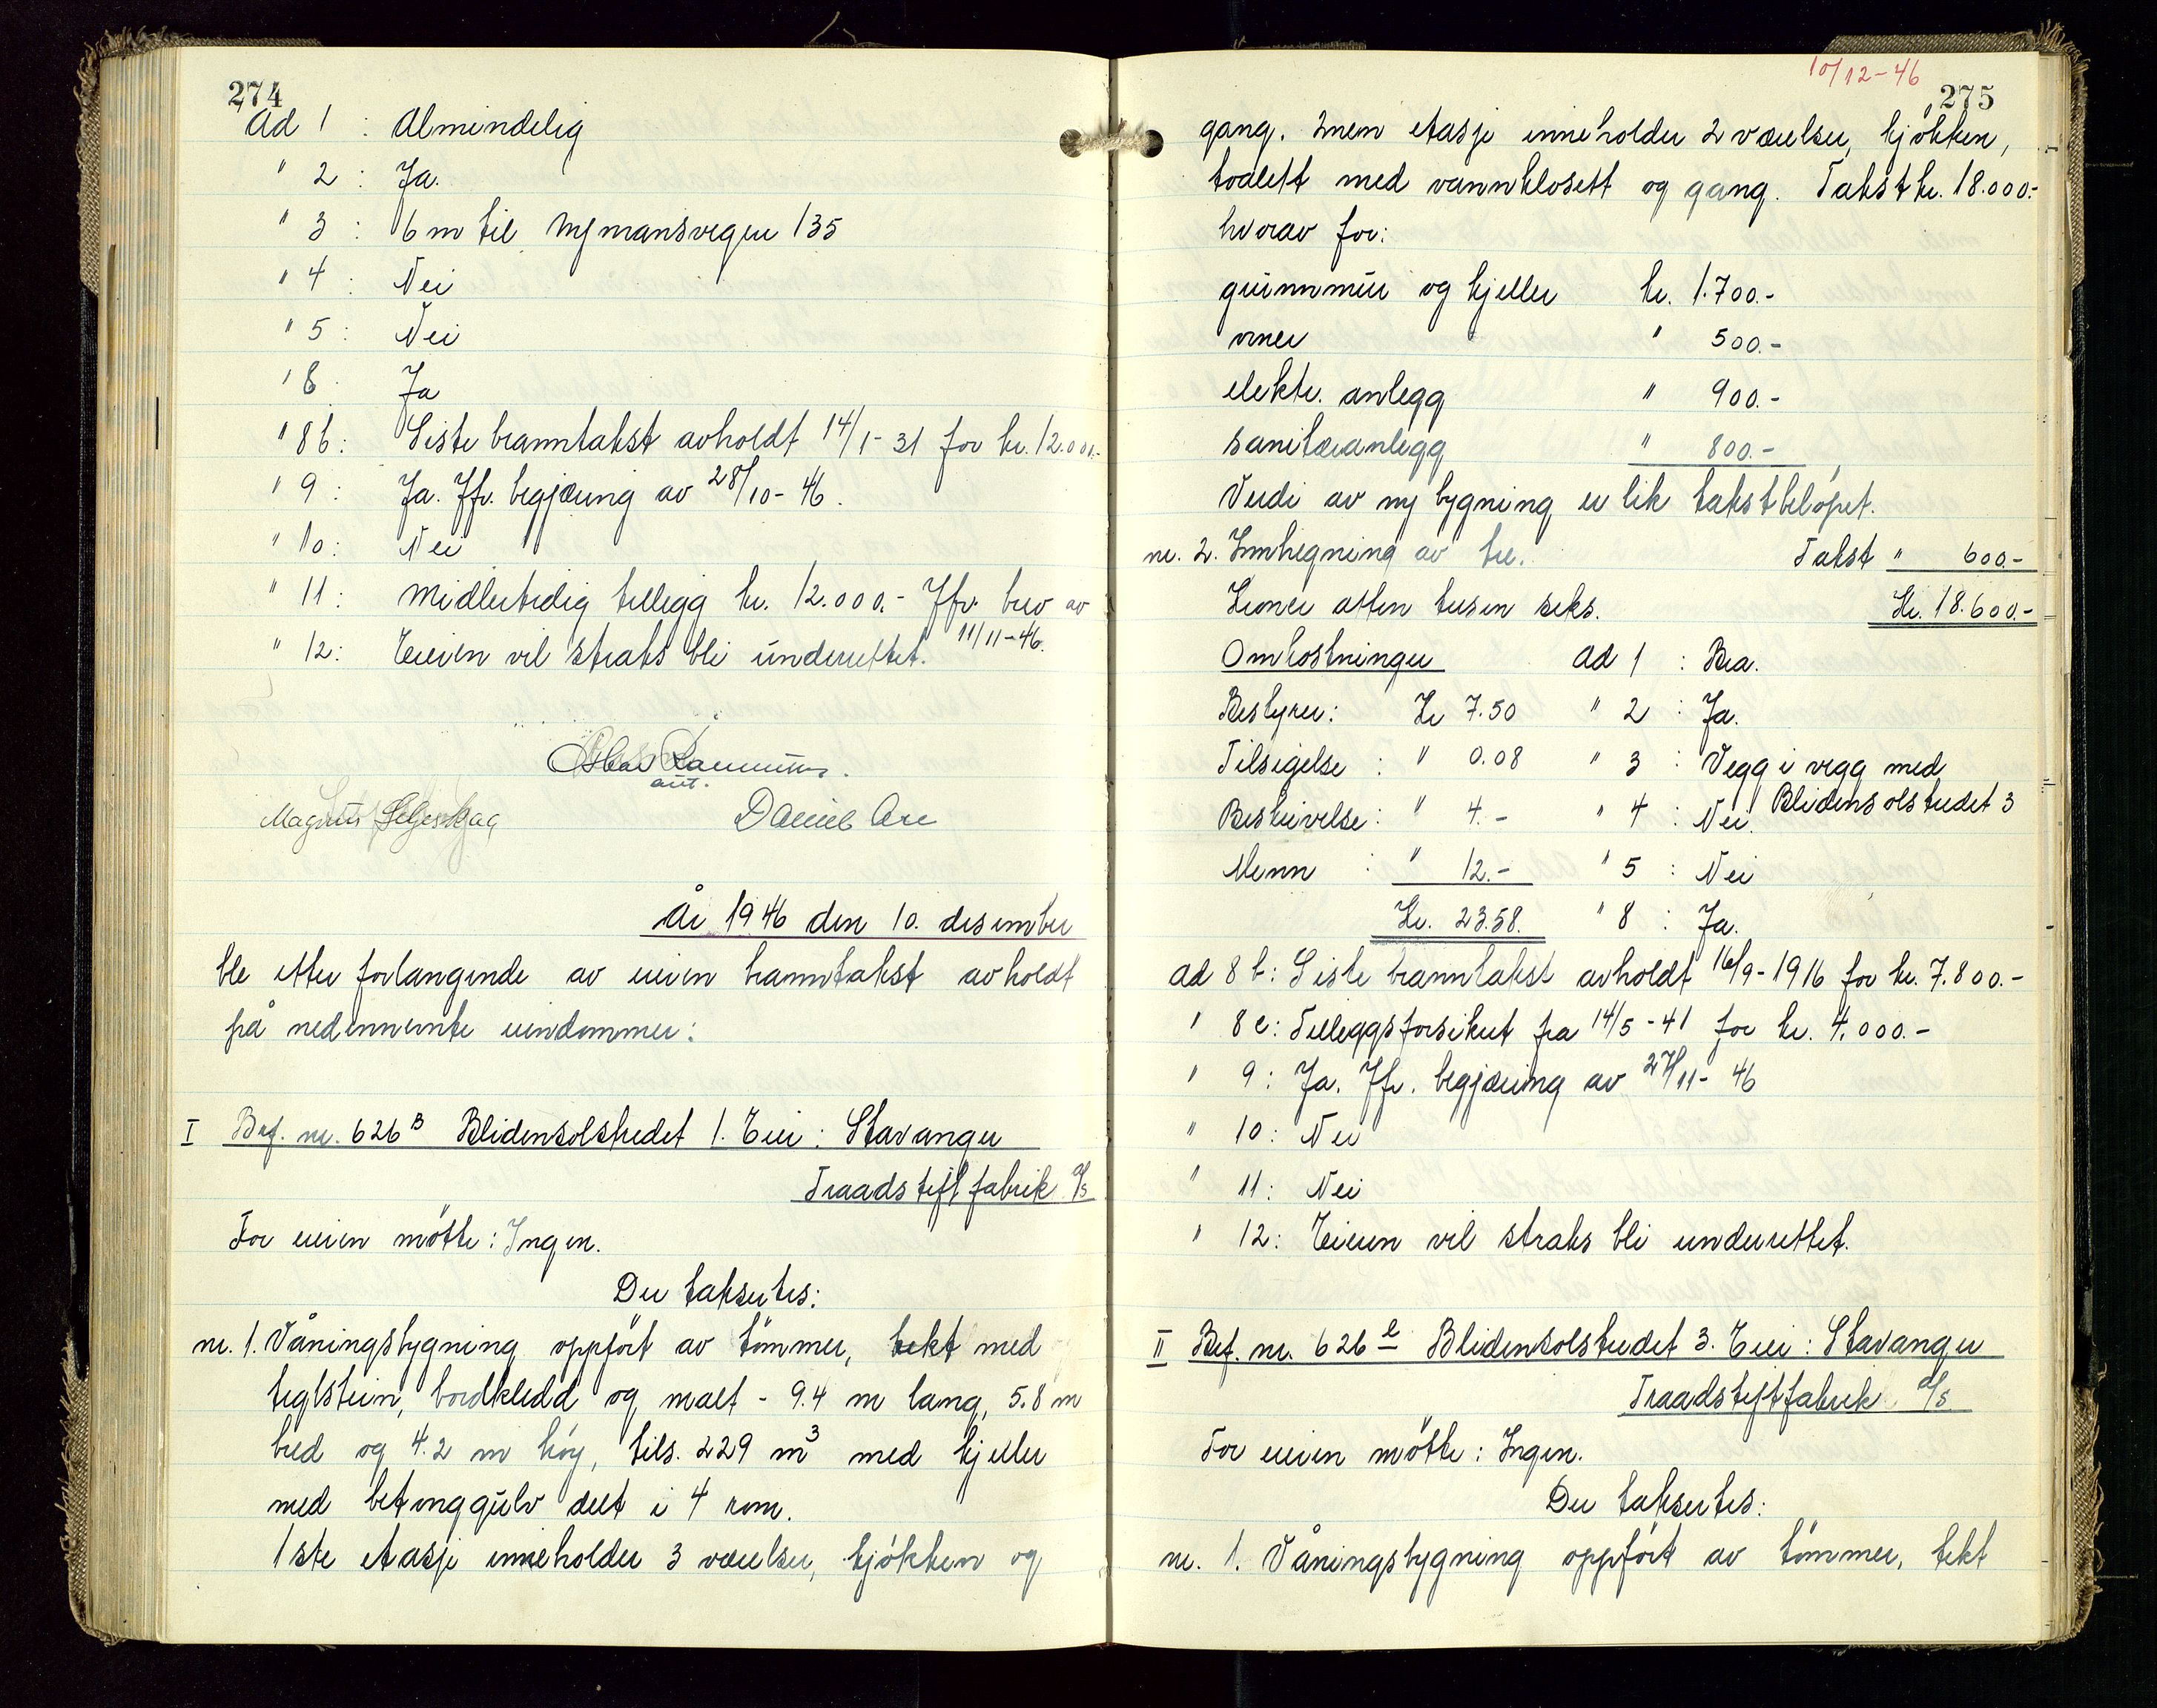 274
Ad 1 : Almindelig
" 2 : Ja.
" 3 : 6 m til Nymansveien 135
" 4 : Nei
" 5 : Nei
" 8 : Ja
" 8b: Siste branntakst avholdt 14/1-31 for kr. 12.000.-
" 9 : Ja. Jfr. begjæring av 28/10-46.
" 10: Nei
" 11: Midlertidig tillegg kr. 12.000.- Jfr. brev av
11/11-46.
" 12: Eieren vil straks bli underrettet.
aut.
Magnus
Daniel
År 1946 den 10. desember
ble etter forlangende av eieren branntakst avholdt
på nedennevnte eiendommer:
I Brf. nr. 626 B Blidensolstredet 1. Eier: Stavanger
Traadstiftfabrik A/S
For eieren møtte: Ingen.
Der taksertes:
nr. 1. Våningsbygning oppført av tømmer, tekt med
teglstein, bordkledd og malt - 9.4 m lang, 5.8 m
bred og 4.2 m høy, tils. 229 m3 med kjeller
med betonggulv delt i 4 rom.
1ste etasje inneholder 3 værelser, kjøkken og
10/12-46
275
gang. 2nen etasje inneholder 2 værelser, kjøkken,
toalett med vannklosett og gang. Takst kr. 18.000.-
hvorav for:
grunnmur og kjeller kr. 1.700.-
ovner " 500.-
elektr. anlegg " 900.-
sanitæranlegg " 800.-
Verdi av ny bygning er lik takstbeløpet.
nr. 2. Innhegning av tre. Takst " 600.-
Kroner atten tusen seks. Kr. 18.600.-
Omkostninger Ad 1 : Bra.
Bestyrer: Kr 7.50 " 2 : Ja.
Tilsigelse : " 0.08 " 3 : Vegg i vegg med
Blidensolstredet 3
Beskrivelse: " 4.- " 4 : Nei.
Menn : " 12.- " 5 : Nei
Kr. 23.58. " 8 : Ja.
Ad 8 b: Siste branntakst avholdt 16/9-1916 for kr. 7.800.-
" 8 c: Tilleggsforsikret fra 14/5-41 for kr. 4.000.-
" 9: Ja. Jfr. begjæring av 27/11-46
" 10: Nei
" 11: Nei
" 12: Eieren vil straks bli underrettet.
II Brf. nr. 626 e Blidensolstredet 3. Eier: Stavanger
Traadstiftfabrik A/S.
For eieren møtte: Ingen.
Der taksertes:
nr. 1. Våningsbygning oppført av tømmer, tekt